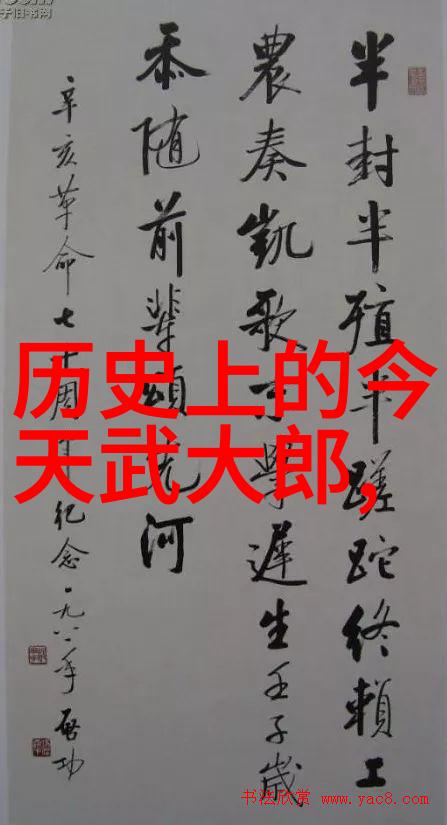 半封半殖半蹉跎終賴工
農奏凱歌末學遲生壬子歲
忝随前輩頌先河
辛亥革命七十周年纪念一九八一年 启功
历史上的今
天武大郎,
书法欣赏 www.yac8.com